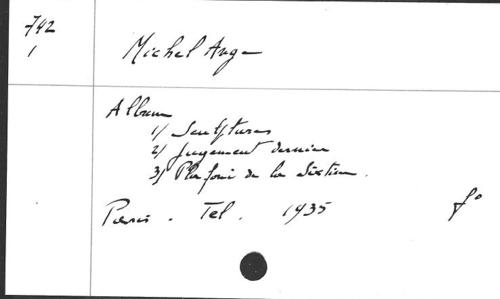 742
1
Michel Ange
Album
1/ Sculptures
2/ Jugement dernier
3/ Plafond de la Sixtine.
Paris. Tel. 1935 fo